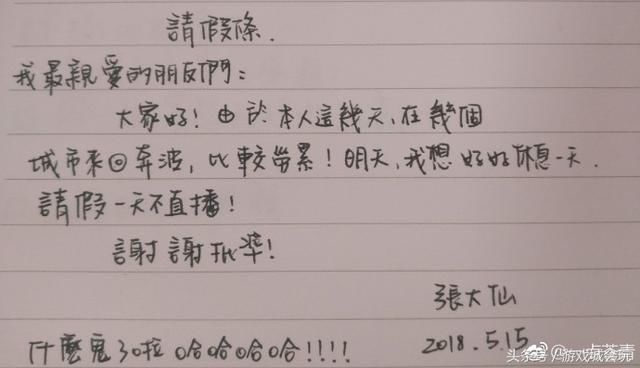 請假條.
我最親愛的朋友們：
大家好！由於本人這幾天、在幾個
城市來回奔波，比較勞累！明天，我想好好休息一天.
請假一天不直播！
謝謝批準！
張大仙
2018.5.15
什麼鬼 哈哈哈哈!!!!
@一点芬青
头条号/游戏城会玩